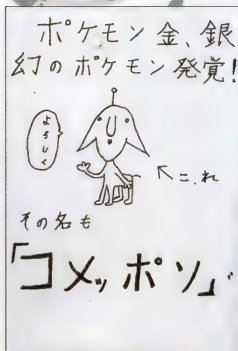 ポケモン金、銀
幻のポケモン発覚!
よろしく
←これ
その名も
「コメッポソ」